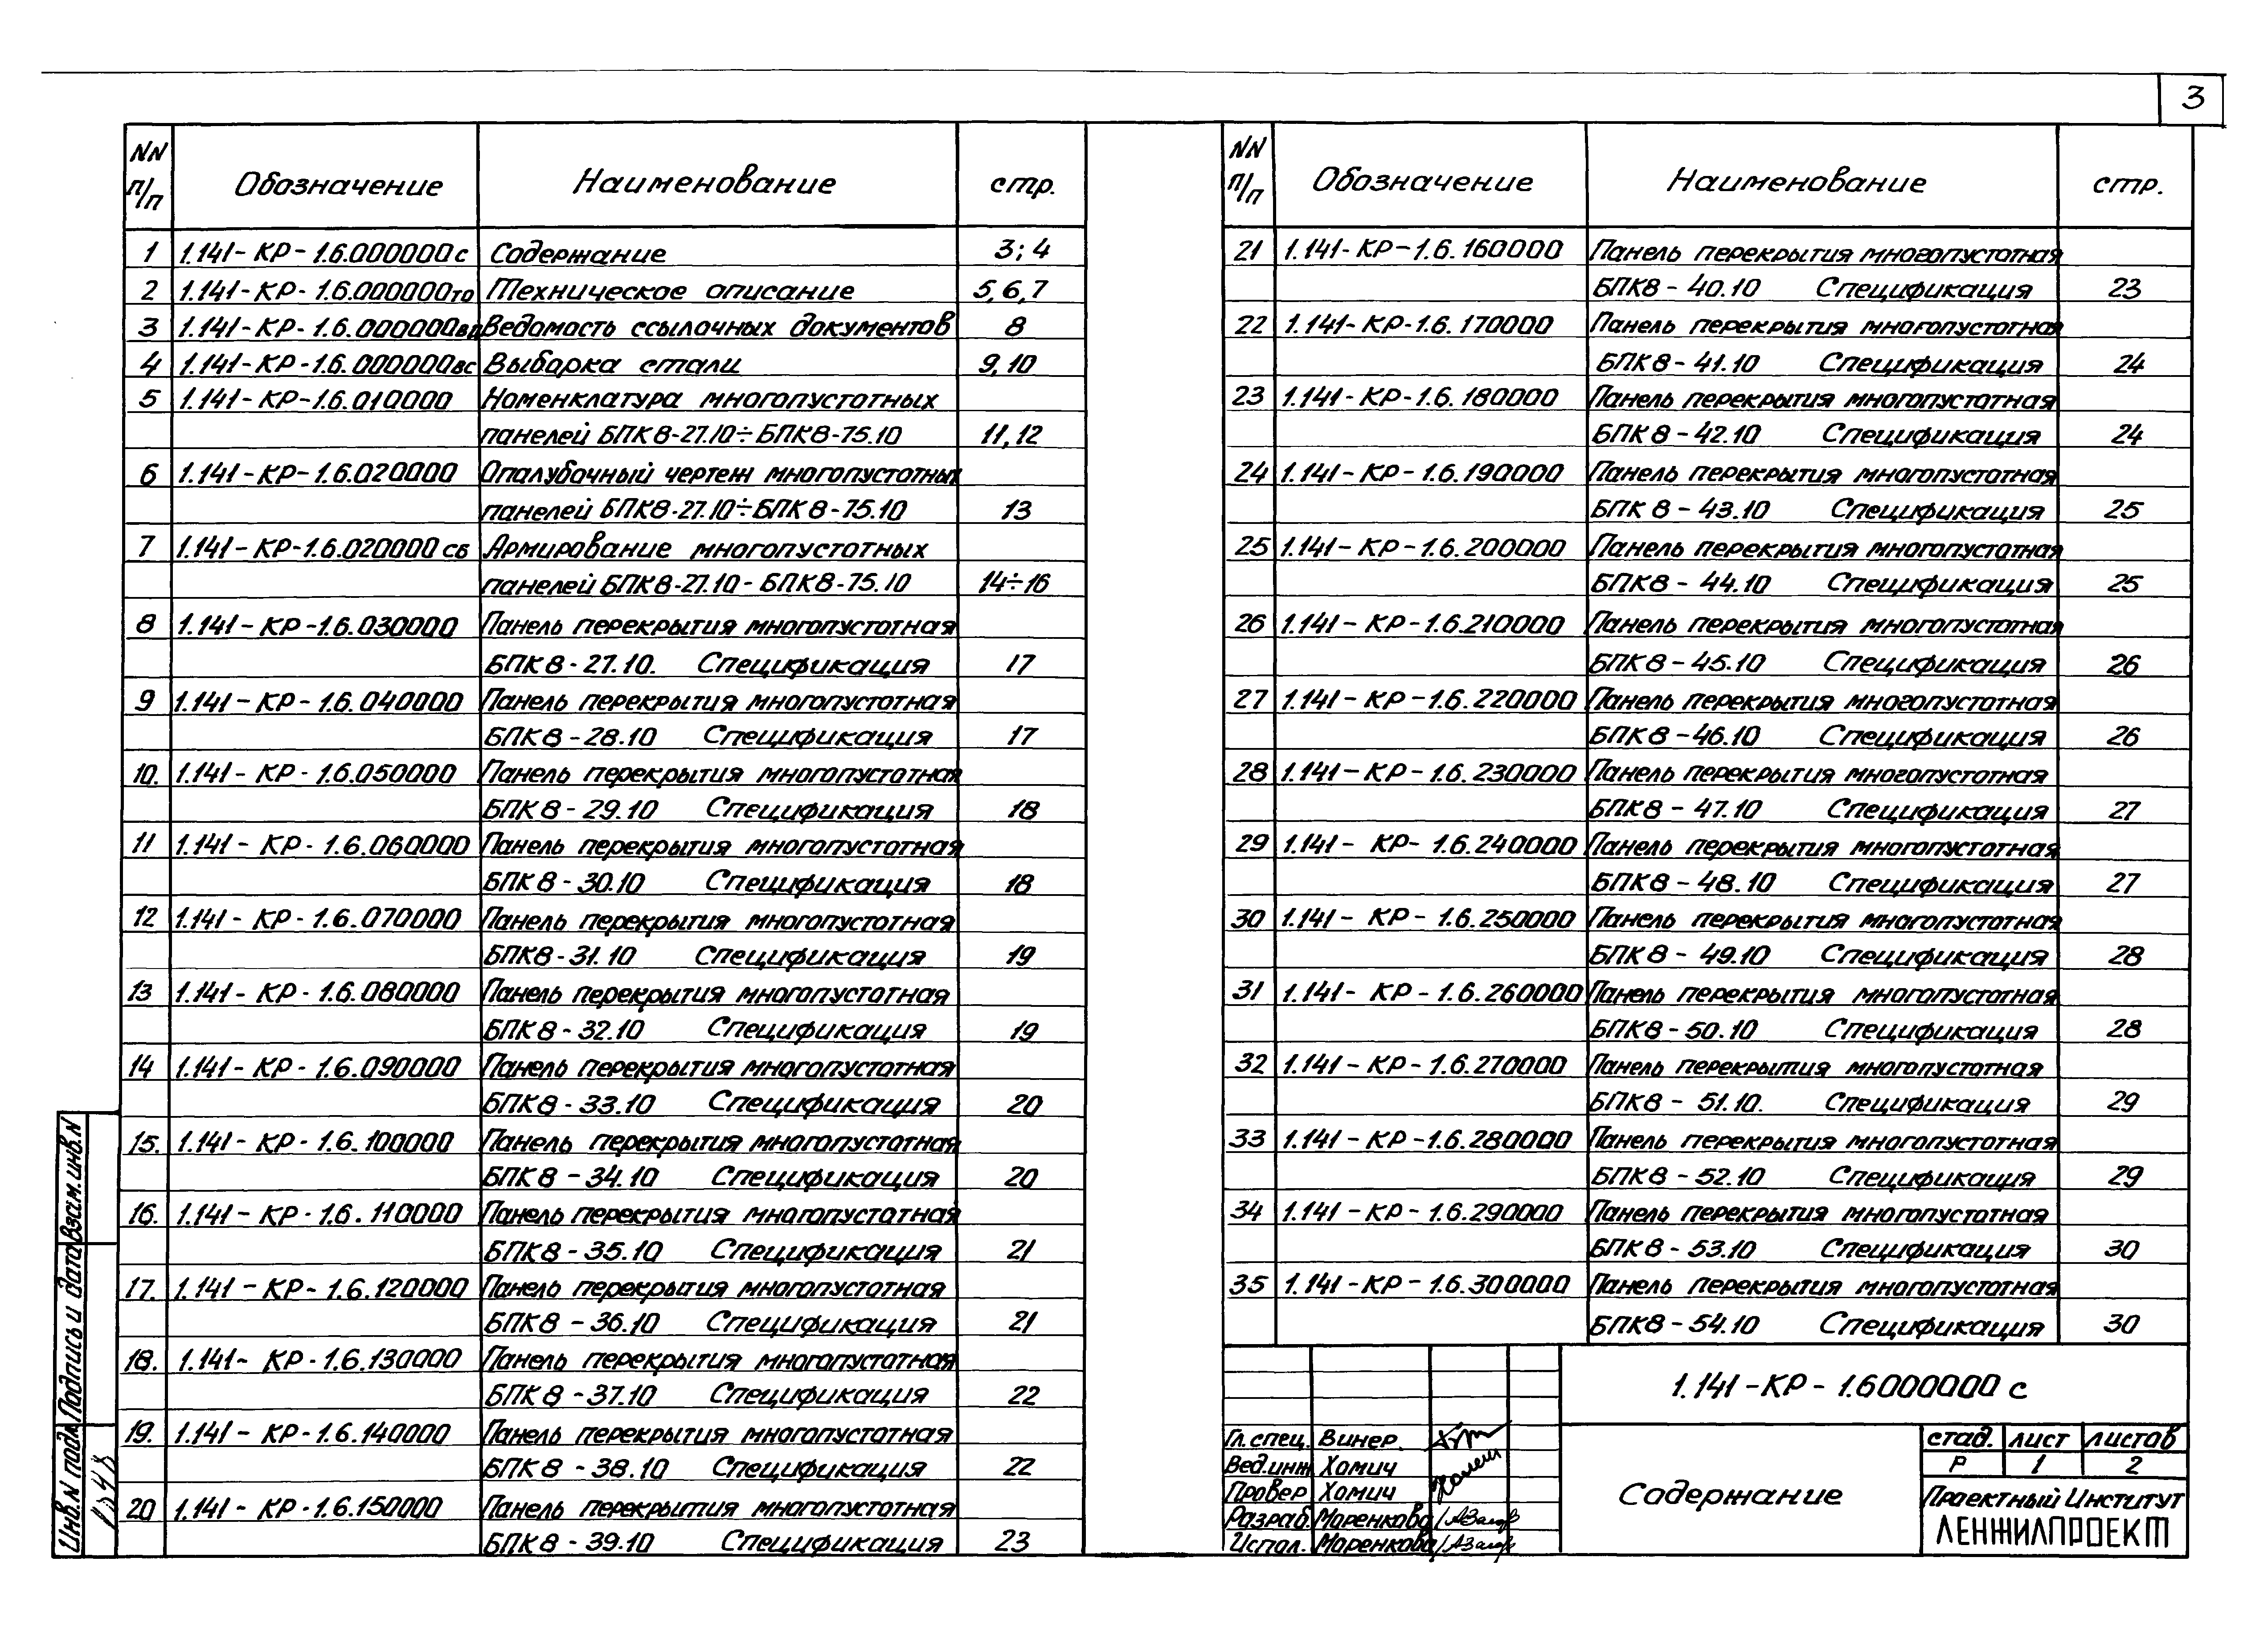 3
NN п/п Обозначение Наименование стр.
1 1.141-КР-1.6.000000с Содержание 3; 4
2 1.141-КР-1.6.000000то Техническое описание 5,6,7
3 1.141-КР-1.6.000000вд Ведомость ссылочных документов 8
4 1.141-КР-1.6.000000вс Выборка стали 9,10
5 1.141-КР-1.6.010000 Номенклатура многопустотных
панелей БПК8-27.10÷БПК8-75.10 11,12
6 1.141-КР-1.6.020000 Опалубочный чертеж многопустотных
панелей БПК8-27.10÷БПК8-75.10 13
7 1.141-КР-1.6.020000сб Армирование многопустотных
панелей БПК8-27.10-БПК8-75.10 14÷16
8 1.141-КР-1.6.030000 Панель перекрытия многопустотная
БПК8-27.10. Спецификация 17
9 1.141-КР-1.6.040000 Панель перекрытия многопустотная
БПК8-28.10 Спецификация 17
10. 1.141-КР-1.6.050000 Панель перекрытия многопустотная
БПК8-29.10 Спецификация 18
11 1.141-КР-1.6.060000 Панель перекрытия многопустотная
БПК8-30.10 Спецификация 18
12 1.141-КР-1.6.070000 Панель перекрытия многопустотная
БПК8-31.10 Спецификация 19
13 1.141-КР-1.6.080000 Панель перекрытия многопустотная
БПК8-32.10 Спецификация 19
14 1.141-КР-1.6.090000 Панель перекрытия многопустотная
БПК8-33.10 Спецификация 20
15. 1.141-КР-1.6.100000 Панель перекрытия многопустотная
БПК8-34.10 Спецификация 20
16. 1.141-КР-1.6.110000 Панель перекрытия многопустотная
БПК8-35.10 Спецификация 21
17. 1.141-КР-1.6.120000 Панель перекрытия многопустотная
БПК8-36.10 Спецификация 21
18. 1.141-КР-1.6.130000 Панель перекрытия многопустотная
БПК8-37.10 Спецификация 22
19. 1.141-КР-1.6.140000 Панель перекрытия многопустотная
БПК8-38.10 Спецификация 22
20 1.141-КР-1.6.150000 Панель перекрытия многопустотная
БПК8-39.10 Спецификация 23
NN п/п Обозначение Наименование стр.
21 1.141-КР-1.6.160000 Панель перекрытия многопустотная
БПК8-40.10 Спецификация 23
22 1.141-КР-1.6.170000 Панель перекрытия многопустотная
БПК8-41.10 Спецификация 24
23 1.141-КР-1.6.180000 Панель перекрытия многопустотная
БПК8-42.10 Спецификация 24
24 1.141-КР-1.6.190000 Панель перекрытия многопустотная
БПК8-43.10 Спецификация 25
25 1.141-КР-1.6.200000 Панель перекрытия многопустотная
БПК8-44.10 Спецификация 25
26 1.141-КР-1.6.210000 Панель перекрытия многопустотная
БПК8-45.10 Спецификация 26
27 1.141-КР-1.6.220000 Панель перекрытия многопустотная
БПК8-46.10 Спецификация 26
28 1.141-КР-1.6.230000 Панель перекрытия многопустотная
БПК8-47.10 Спецификация 27
29 1.141-КР-1.6.240000 Панель перекрытия многопустотная
БПК8-48.10 Спецификация 27
30 1.141-КР-1.6.250000 Панель перекрытия многопустотная
БПК8-49.10 Спецификация 28
31 1.141-КР-1.6.260000 Панель перекрытия многопустотная
БПК8-50.10 Спецификация 28
32 1.141-КР-1.6.270000 Панель перекрытия многопустотная
БПК8-51.10. Спецификация 29
33 1.141-КР-1.6.280000 Панель перекрытия многопустотная
БПК8-52.10 Спецификация 29
34 1.141-КР-1.6.290000 Панель перекрытия многопустотная
БПК8-53.10 Спецификация 30
35 1.141-КР-1.6.300000 Панель перекрытия многопустотная
БПК8-54.10 Спецификация 30
1.141-КР-1.6000000 с
Гл.спец. Винер.
Вед.инж Хомич
Провер Хомич
Разраб. Моренкова
Испол. Моренкова
Содержание
стад. лист листов
Р 1 2
Проектный Институт
ЛЕНЖИЛПРОЕКТ
Взам.инв.N
Подпись и дата
Инв.N подл.